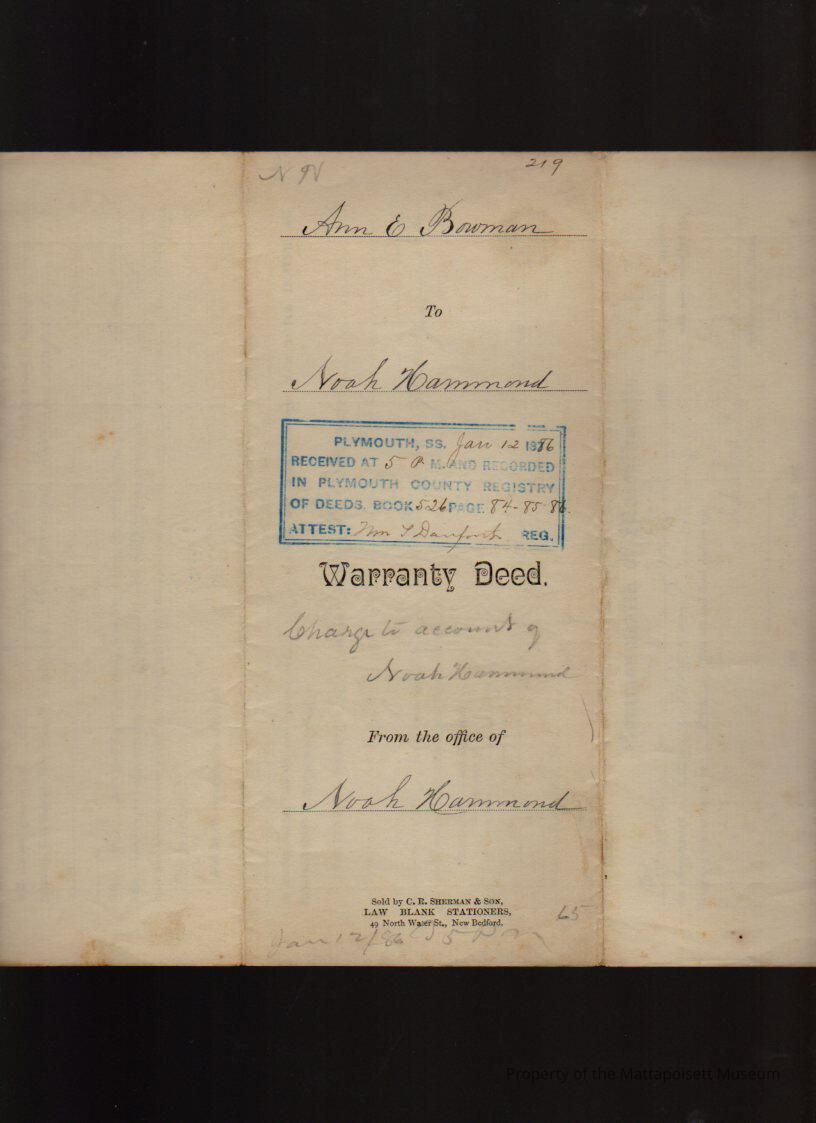 N N
219
Ann E Bowman
To
Noah Hammond
PLYMOUTH, SS. Jan 12 1886
RECEIVED AT 5 P M. AND RECORDED
IN PLYMOUTH COUNTY REGISTRY
OF DEEDS, BOOK 526 PAGE 84-85-86.
ATTEST: Wm S Danforth REG.
Warranty Deed.
Charge to account of
Noah Hammond
From the office of
Noah Hammond
Sold by C. R. SHERMAN & SON,
LAW BLANK STATIONERS,
49 North Water St., New Bedford.
65
Jan 12/86 5 P M
Property of the Mattapoisett Museum